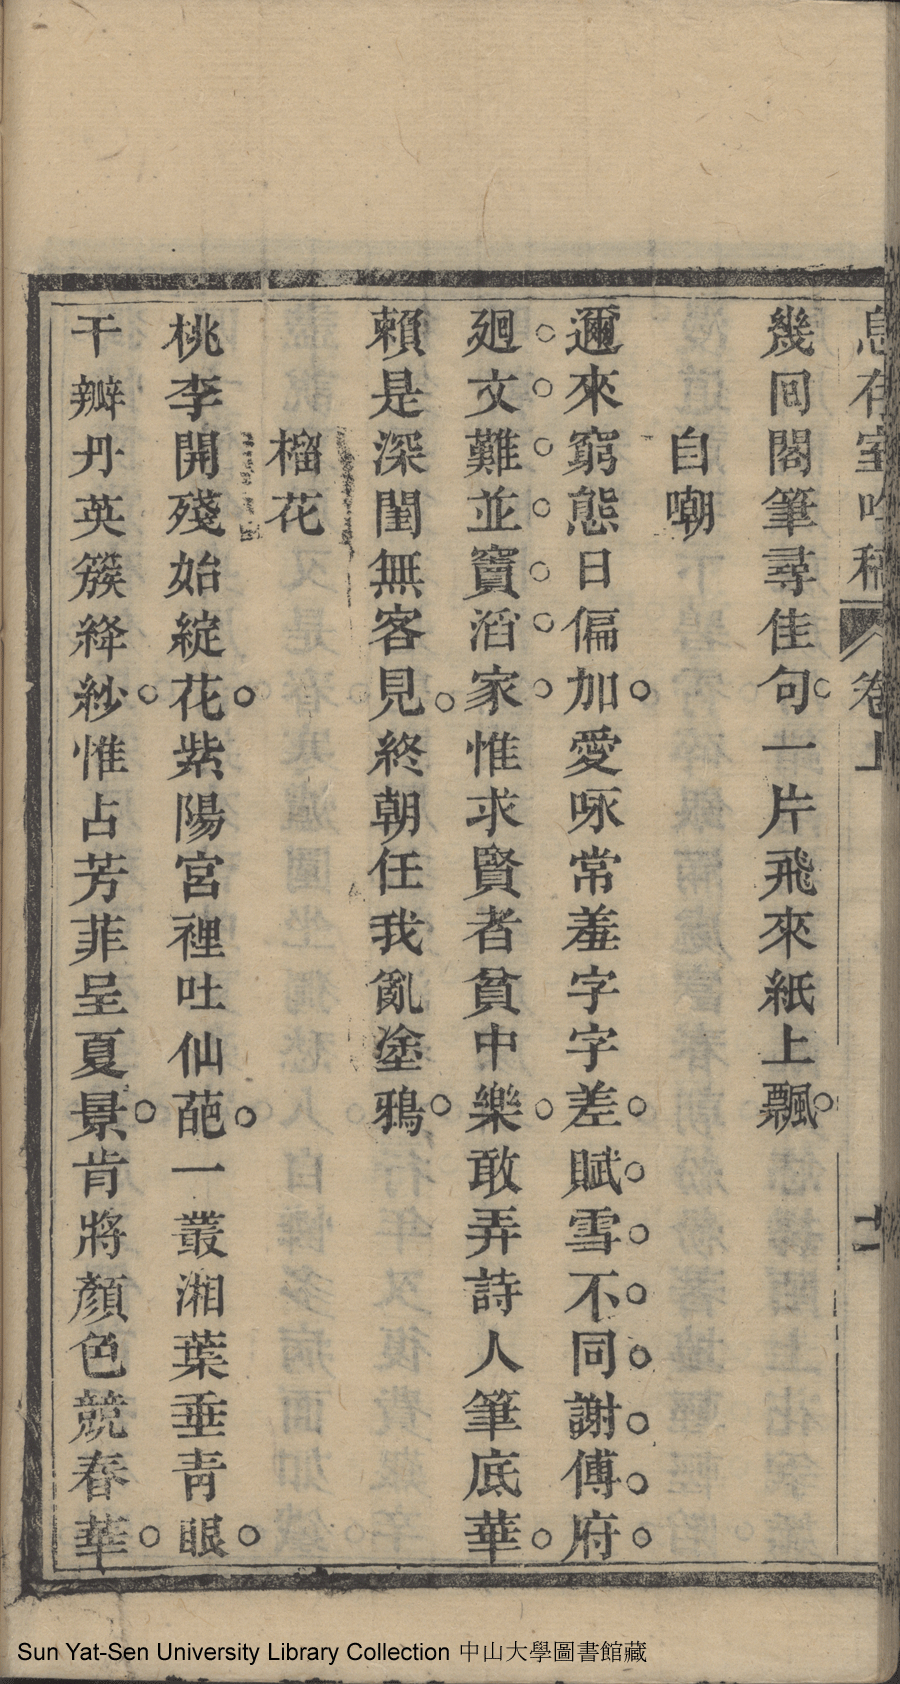 息存室吟稿 卷上
幾回閣筆尋佳句一片飛來紙上飄
自嘲
邇來窮態日偏加愛啄常羞字字差賦雪不同謝傅府
廻文難並竇滔家惟求賢者貧中樂敢弄詩人筆底華
賴是深閨無客見終朝任我亂塗鴉
榴花
桃李開殘始綻花紫陽宮裡吐仙葩一叢湘葉垂青眼
干瓣丹英簇絳紗惟占芳菲呈夏景肯將顏色競春華
Sun Yat-Sen University Library Collection 中山大學圖書館藏